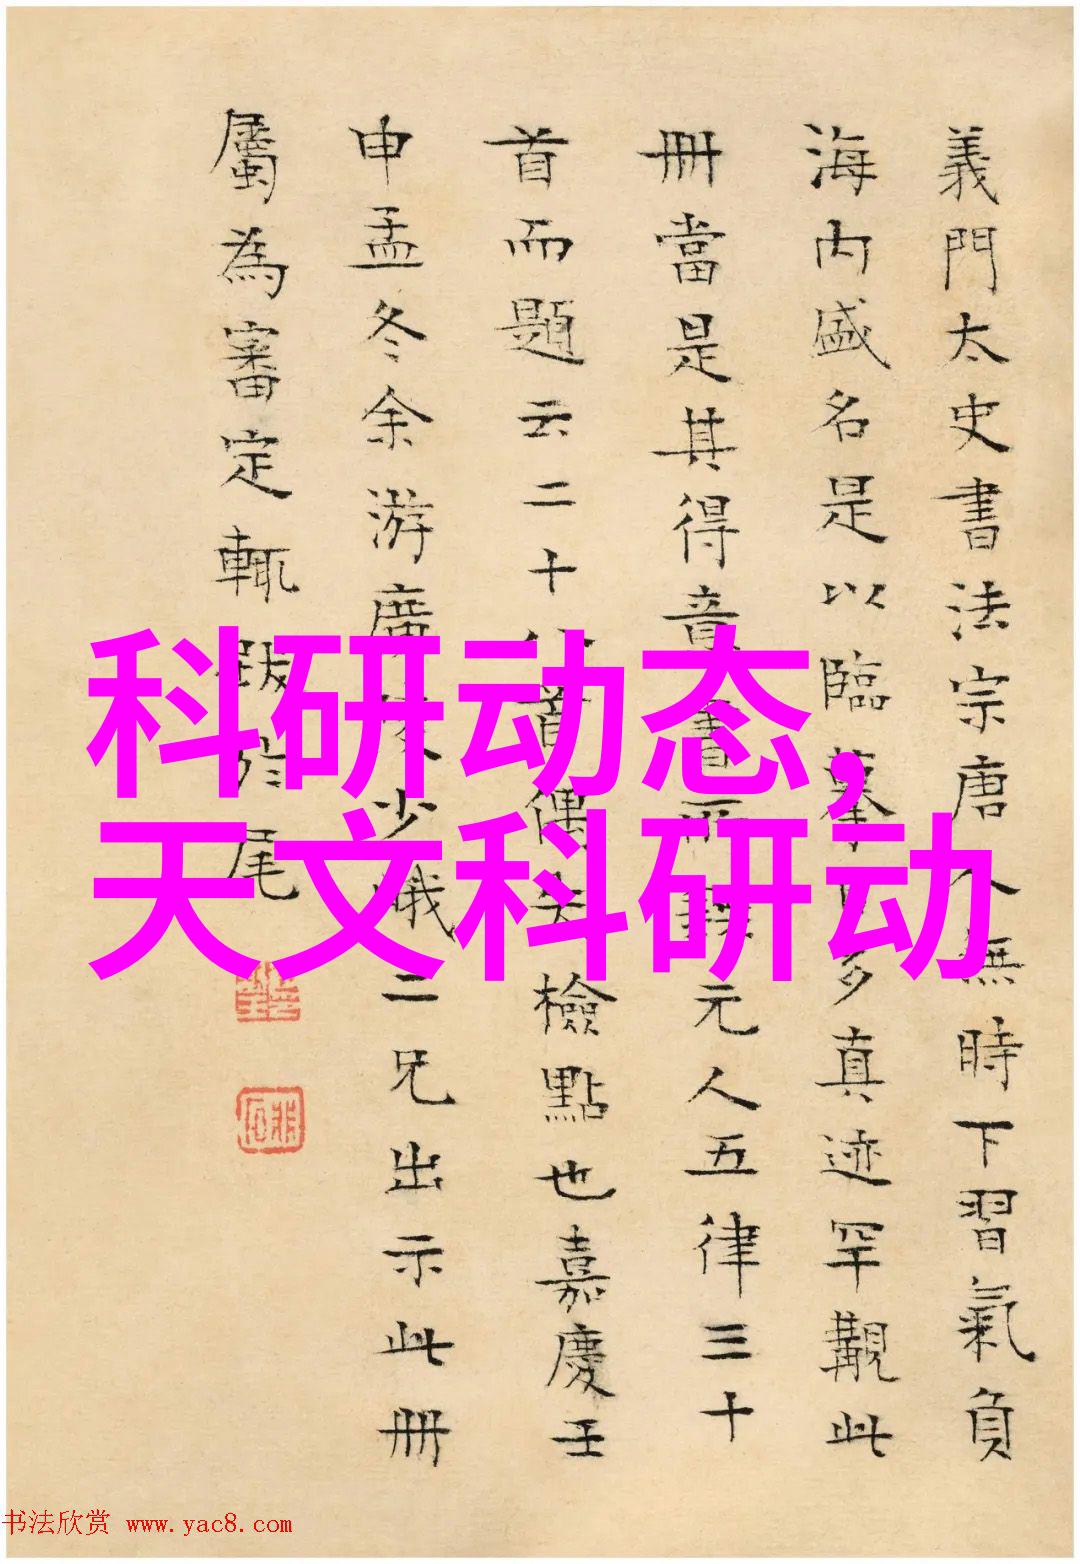 義門太史書法宗唐人無時下習氣負
海内盛名是以臨摹日多真迹罕覯此
冊當是其得意書所録元人五律三十
首而題云二十八首偶失檢點也嘉慶壬
申孟冬余游廣陵少峨二兄出示此冊
屬為審定輒跋於尾
科研动态,
天文科研动
书法欣赏 www.yac8.com